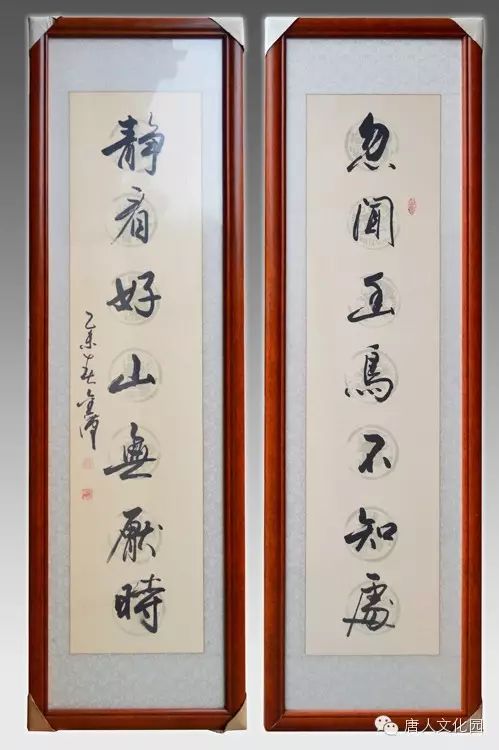 忽聞玉鳥不知處
靜看好山無厭時
乙未春
唐人文化园